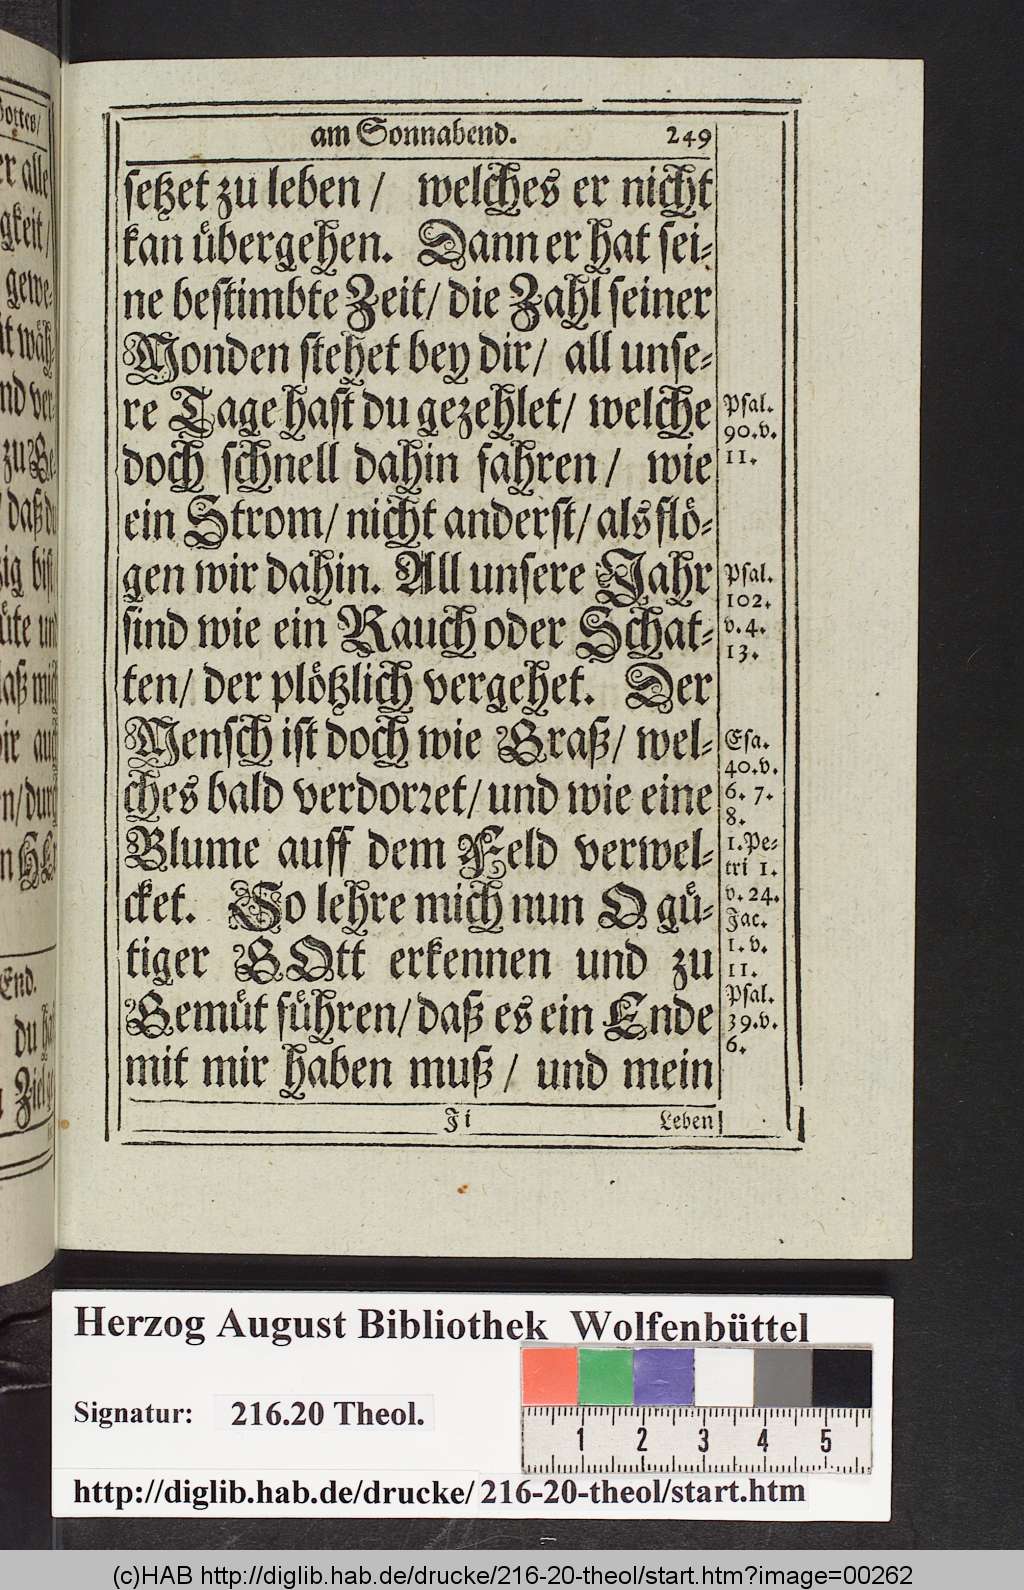 am Sonnabend. 249
setzet zu leben / welches er nicht
kan übergehen. Dann er hat sei-
ne bestimbte Zeit/ die Zahl seiner
Monden stehet bey dir/ all unse-
re Tage hast du gezehlet/ welche
doch schnell dahin fahren/ wie
ein Strom/ nicht anderst/ als flö-
gen wir dahin. All unsere Jahr
sind wie ein Rauch oder Schat-
ten/ der plötzlich vergehet. Der
Mensch ist doch wie Graß/ wel-
ches bald verdorꝛet/ und wie eine
Blume auff dem Feld verwel-
cket. So lehre mich nun O gü-
tiger GOtt erkennen und zu
Gemüt führen/ daß es ein Ende
mit mir haben muß / und mein
Ji Leben
Psal.
90.v.
11.
Psal.
102.
v.4.
13.
Esa.
40.v.
6. 7.
8.
1.Pe-
tri 1.
v.24.
Jac.
1.v.
11.
Psal.
39.v.
6.
Gottes/
er alle
gkeit/
gewe-
nd ver-
zu Ge-
daß du
zig bist
üte und
laß mich
ir auch
en/ durch
End.
du hast
Ziel ge-
Herzog August Bibliothek Wolfenbüttel
Signatur: 216.20 Theol.
1 2 3 4 5
http://diglib.hab.de/drucke/216-20-theol/start.htm
(c)HAB http://diglib.hab.de/drucke/216-20-theol/start.htm?image=00262